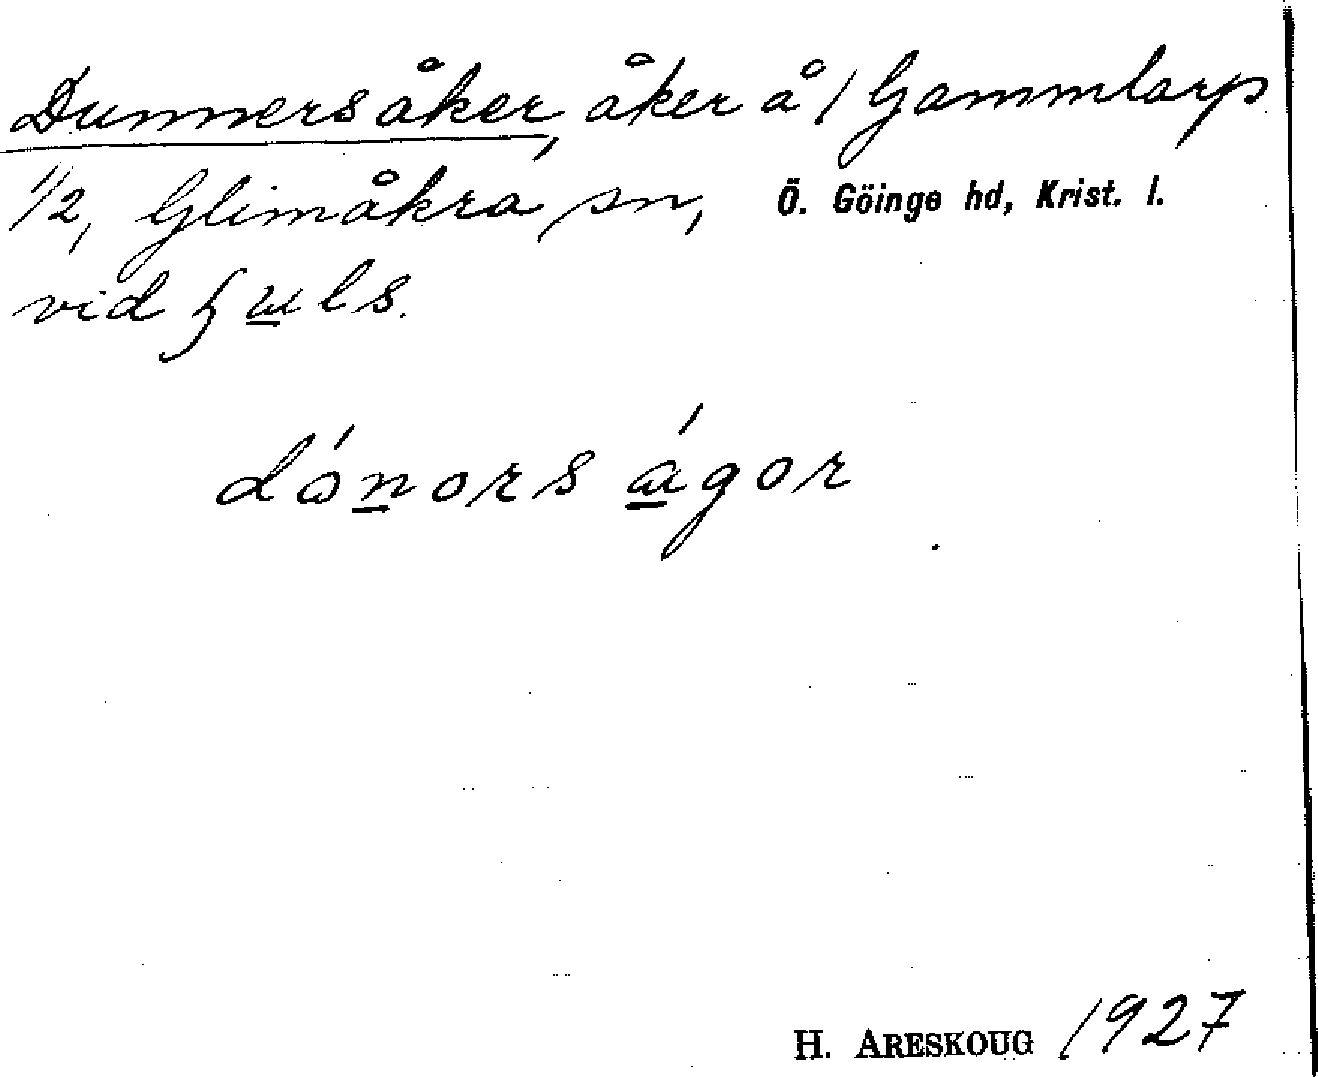 Dunnersåker, åker å / Gammlarp
1/2, Glimåkra sn, Ö. Göinge hd, Krist. l.
vid
dónors ágor
H. ARESKOUG 1927